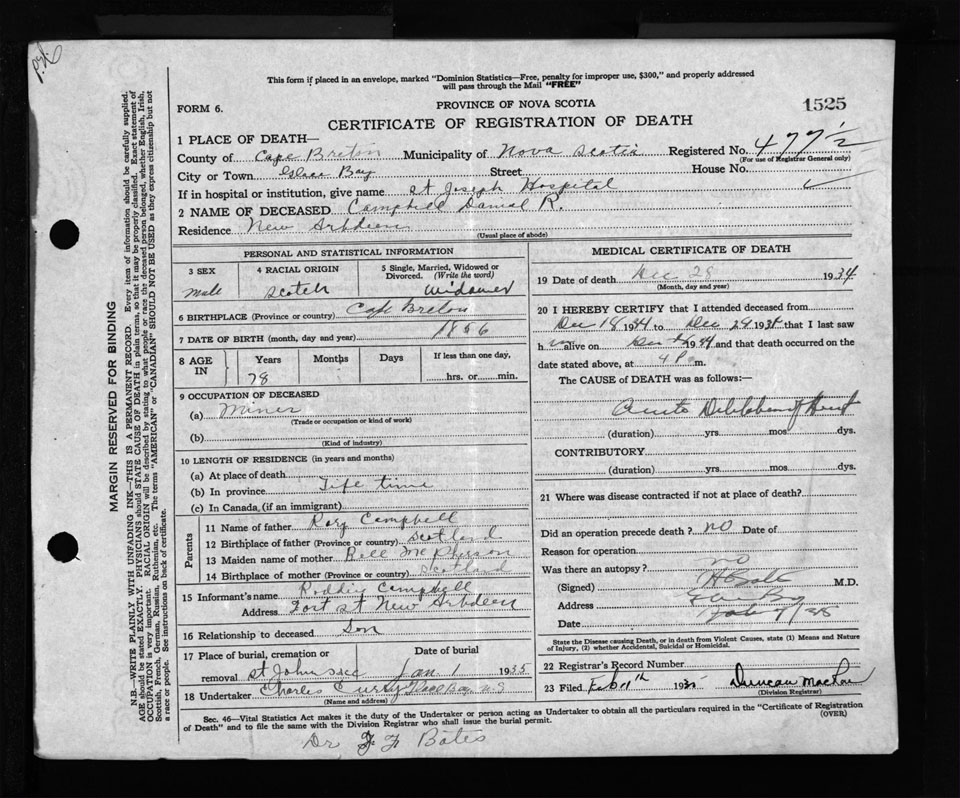 This form if placed in an envelope, marked "Dominion Statistics—Free, penalty for improper use, $300," and properly addressed
will pass through the Mail "FREE"
FORM 6.
PROVINCE OF NOVA SCOTIA
1525
CERTIFICATE OF REGISTRATION OF DEATH
1 PLACE OF DEATH—
Registered No. 477½
(For use of Registrar General only)
County of Cape Breton Municipality of Nova Scotia
City or Town Glace Bay Street House No.
If in hospital or institution, give name St Joseph Hospital
2 NAME OF DECEASED Campbell Danial R.
Residence New Arbdeen
(Usual place of abode)
PERSONAL AND STATISTICAL INFORMATION
3 SEX
Male
4 RACIAL ORIGIN
Scotch
5 Single, Married, Widowed or
Divorced. (Write the word)
Widower
6 BIRTHPLACE (Province or country) Cape Breton
7 DATE OF BIRTH (month, day and year) 1856
8 AGE IN
Years
78
Months
Days
If less than one day,
hrs. or min.
9 OCCUPATION OF DECEASED
(a) Miner
(Trade or occupation or kind of work)
(b)
(Kind of industry)
10 LENGTH OF RESIDENCE (in years and months)
(a) At place of death
(b) In province Life time
(c) In Canada, (if an immigrant)
Parents
11 Name of father Rory Campbell
12 Birthplace of father (Province or country) Scotland
13 Maiden name of mother Bell McPherson
14 Birthplace of mother (Province or country) Scotland
15 Informant's name Roddie Campbell
Address Fort St New Arbdeen
16 Relationship to deceased Son
17 Place of burial, cremation or
removal St Johns
Date of burial
Jan 1 1935
18 Undertaker Charles Curry Glace Bay N.S
(Name and address)
MEDICAL CERTIFICATE OF DEATH
19 Date of death Dec 28 1934
(Month, day and year)
20 I HEREBY CERTIFY that I attended deceased from
Dec 18 1934 to Dec 28 1934 that I last saw
him alive on Dec 1934 and that death occurred on the
date stated above, at 4 P m.
The CAUSE of DEATH was as follows:—
Acute Heart
(duration) yrs mos dys.
CONTRIBUTORY
(duration) yrs mos dys.
21 Where was disease contracted if not at place of death?
Did an operation precede death? no Date of
Reason for operation
Was there an autopsy? no
(Signed) M.D.
Address
Date
State the Disease causing Death, or in death from Violent Causes, state (1) Means and Nature
of Injury, (2) whether Accidental, Suicidal or Homicidal.
22 Registrar's Record Number
23 Filed Feb 11th 1935
(Division Registrar)
Sec. 46—Vital Statistics Act makes it the duty of the Undertaker or person acting as Undertaker to obtain all the particulars required in the "Certificate of Registration
of Death" and to file the same with the Division Registrar who shall issue the burial permit.
(OVER)
Dr J J Bates
MARGIN RESERVED FOR BINDING
N.B.—WRITE PLAINLY WITH UNFADING INK—THIS IS A PERMANENT RECORD. Every item of information should be carefully supplied.
AGE should be stated EXACTLY. PHYSICIANS should STATE CAUSE OF DEATH in plain terms, so that it may be properly classified. Exact statement of
OCCUPATION is very important. RACIAL ORIGIN will be described by stating to what people or race the deceased person belonged, whether English, Irish,
Scottish, French, German, Russian, Ruthenian, etc. The terms "AMERICAN" or "CANADIAN" SHOULD NOT BE USED as they express citizenship but not
a race or people. See instructions on back of certificate.